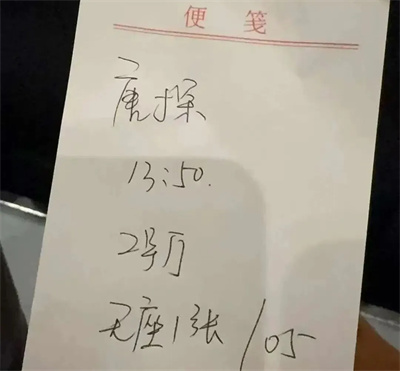 便笺
唐探
13:50.
2号厅
无座1张/05